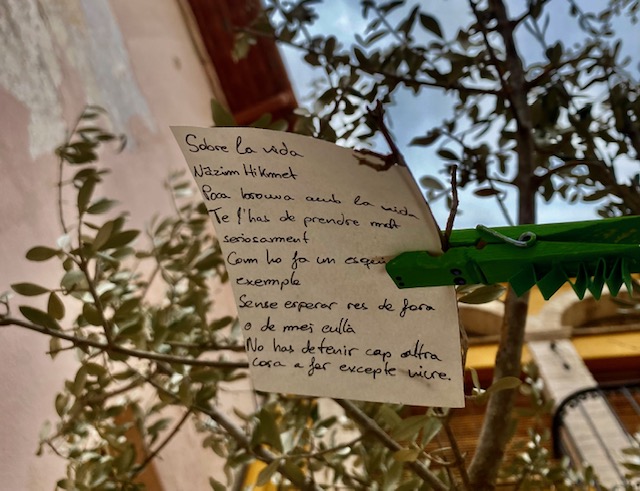 Sobre la vida
Nâzim Hikmet
Poca broma amb la vida
Te l'has de prendre molt
seriosament
Com ho fa un esqui
exemple
Sense esperar res de fora
o de més enllà
No has de tenir cap altra
cosa a fer excepte viure.